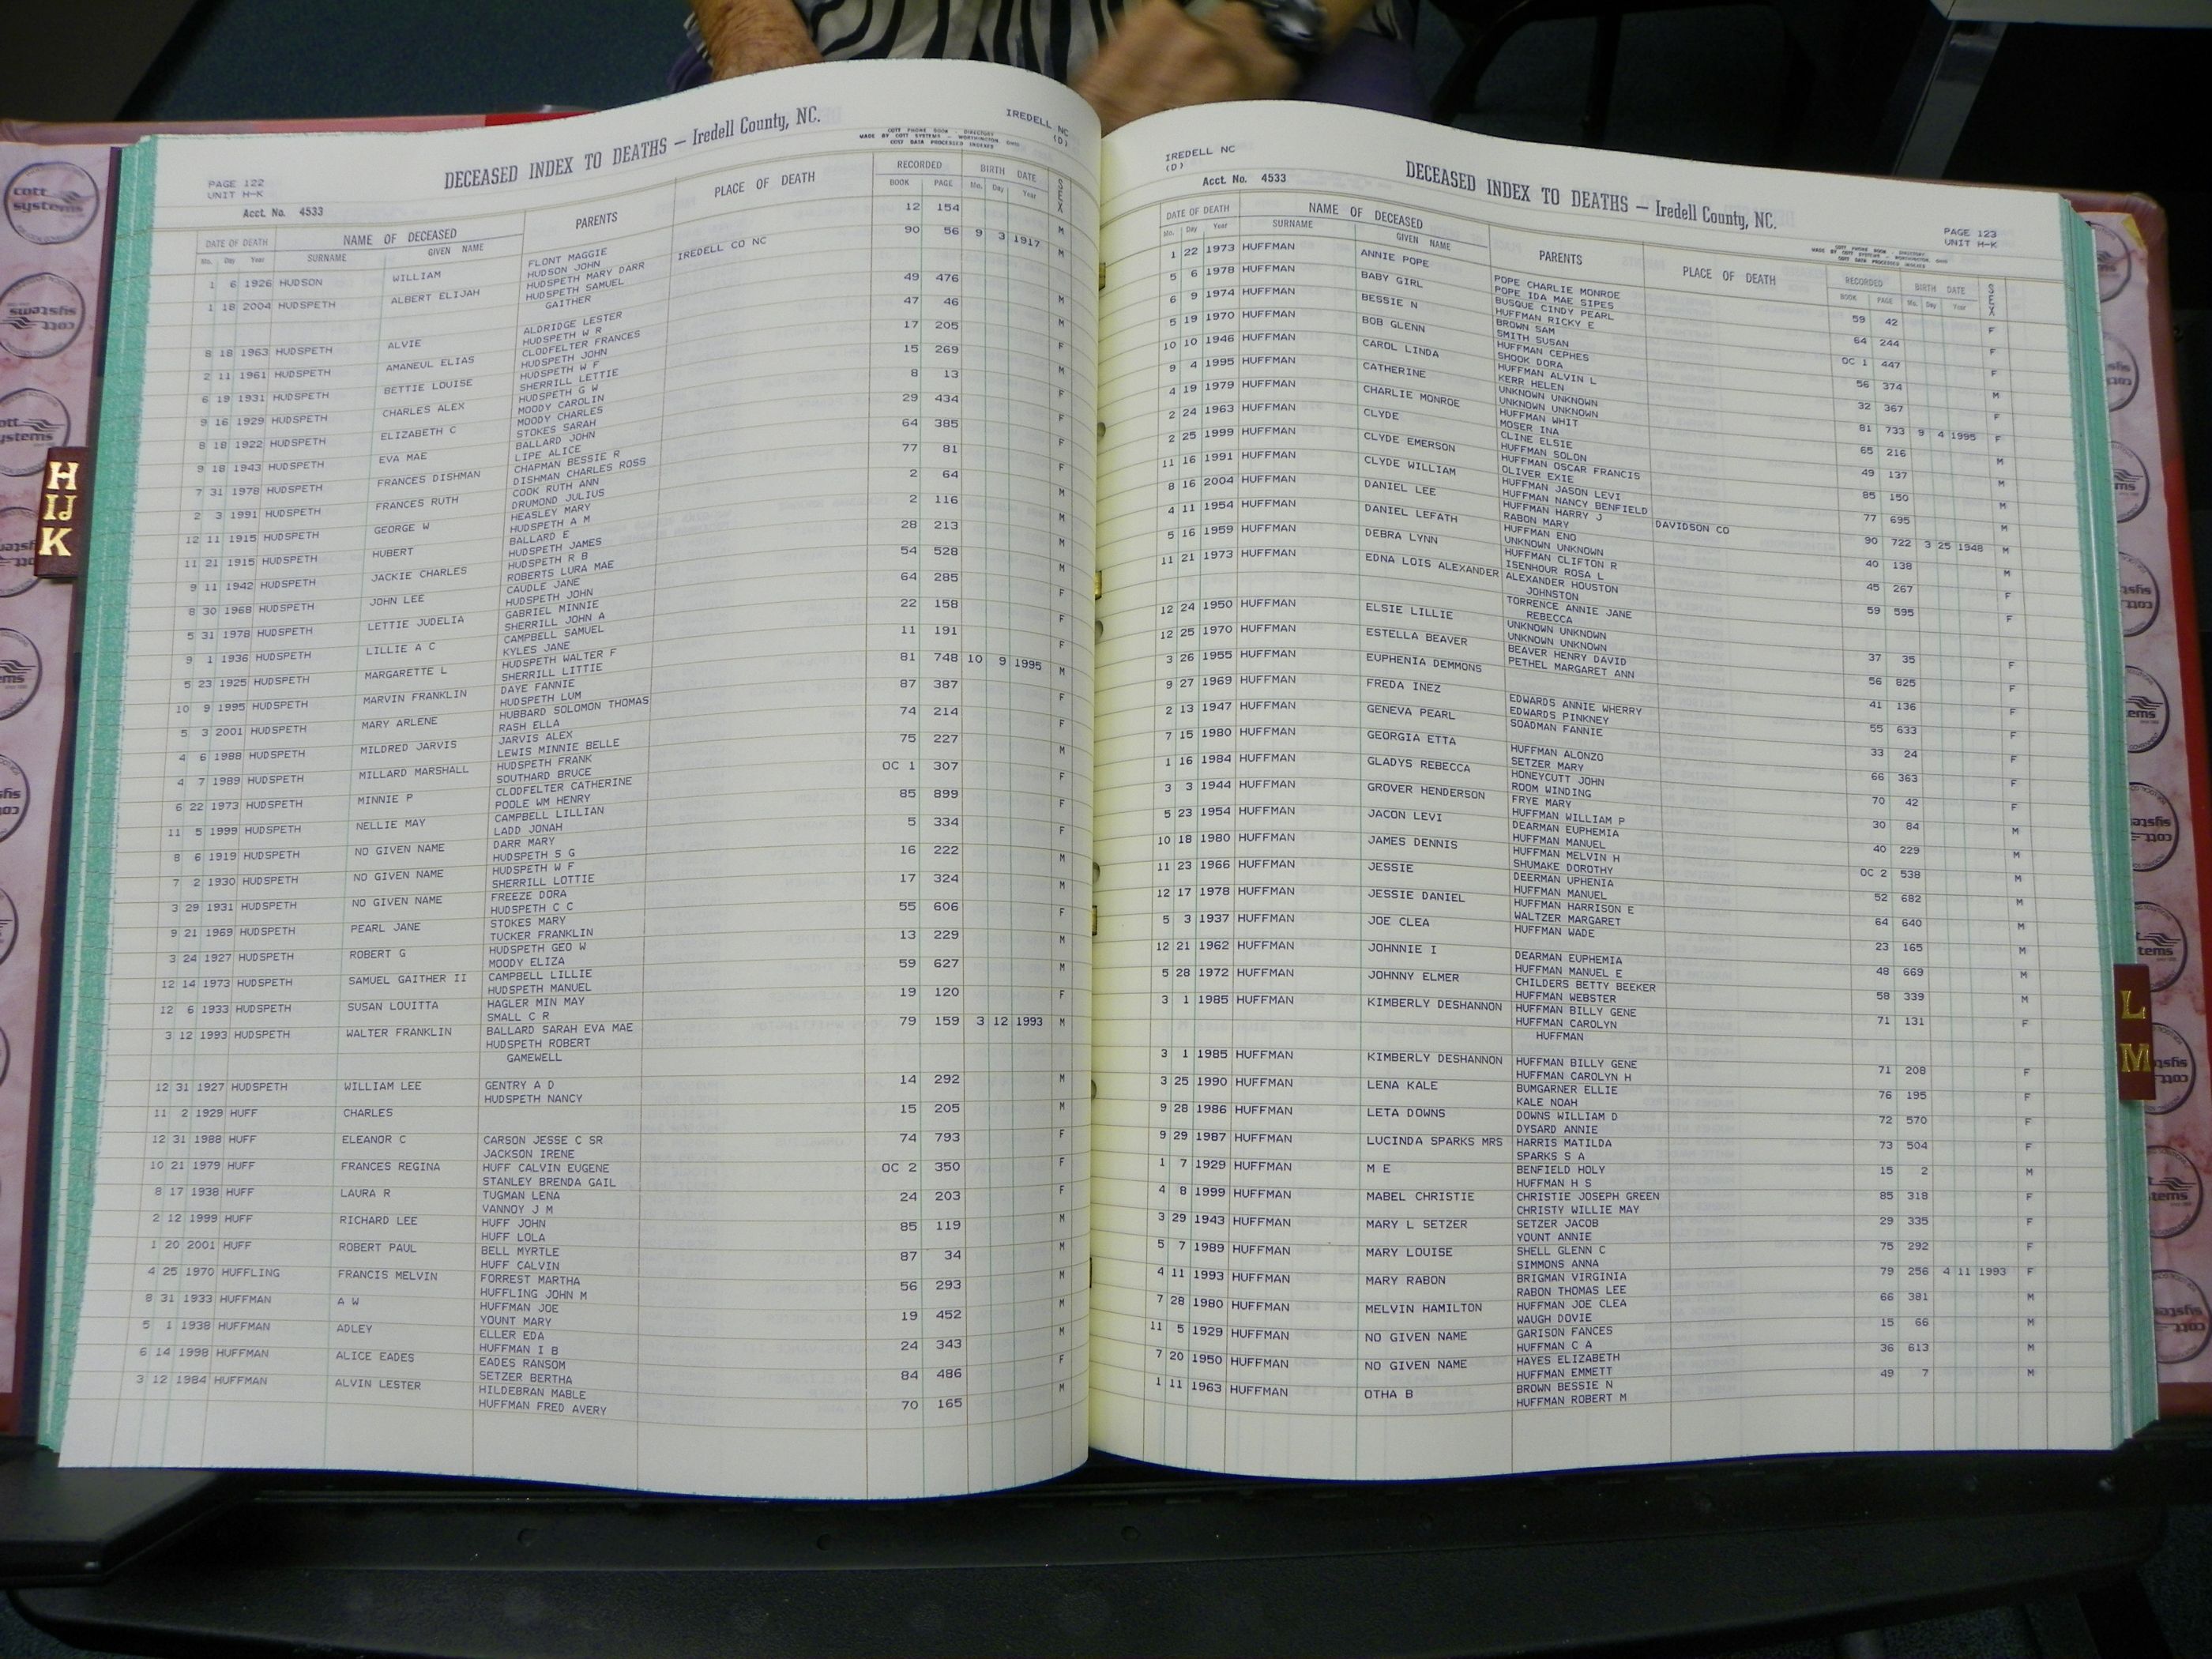 IREDELL NC
(D)
DECEASED INDEX TO DEATHS — Iredell County, NC.
COTT PHONE BOOK - DIRECTORY
MADE BY COTT SYSTEMS - WORTHINGTON, OHIO
COTT DATA PROCESSED INDEXES
PAGE 122
UNIT H-K
Acct. No. 4533
DATE OF DEATH NAME OF DECEASED PARENTS PLACE OF DEATH RECORDED BIRTH DATE SEX
Mo. Day Year SURNAME GIVEN NAME BOOK PAGE Mo. Day Year
1 6 1926 HUDSON WILLIAM FLONT MAGGIE 12 154 M
HUDSON JOHN
1 18 2004 HUDSPETH ALBERT ELIJAH HUDSPETH MARY DARR IREDELL CO NC 90 56 9 3 1917 M
HUDSPETH SAMUEL
GAITHER
8 18 1963 HUDSPETH ALVIE ALDRIDGE LESTER 49 476 M
HUDSPETH W R
2 11 1961 HUDSPETH AMANEUL ELIAS CLODFELTER FRANCES 47 46 M
HUDSPETH JOHN
6 19 1931 HUDSPETH BETTIE LOUISE HUDSPETH W F 17 205 F
SHERRILL LETTIE
9 16 1929 HUDSPETH CHARLES ALEX HUDSPETH G W 15 269 M
MOODY CAROLIN
8 18 1922 HUDSPETH ELIZABETH C MOODY CHARLES 8 13 F
STOKES SARAH
9 18 1943 HUDSPETH EVA MAE BALLARD JOHN 29 434 F
LIPE ALICE
7 31 1978 HUDSPETH FRANCES DISHMAN CHAPMAN BESSIE R 64 385 F
DISHMAN CHARLES ROSS
2 3 1991 HUDSPETH FRANCES RUTH COOK RUTH ANN 77 81 F
DRUMOND JULIUS
12 11 1915 HUDSPETH GEORGE W HEASLEY MARY 2 64 M
HUDSPETH A M
11 21 1915 HUDSPETH HUBERT BALLARD E 2 116 M
HUDSPETH JAMES
9 11 1942 HUDSPETH JACKIE CHARLES HUDSPETH R B 28 213 M
ROBERTS LURA MAE
8 30 1968 HUDSPETH JOHN LEE CAUDLE JANE 54 528 M
HUDSPETH JOHN
5 31 1978 HUDSPETH LETTIE JUDELIA GABRIEL MINNIE 64 285 F
SHERRILL JOHN A
9 1 1936 HUDSPETH LILLIE A C CAMPBELL SAMUEL 22 158 F
KYLES JANE
5 23 1925 HUDSPETH MARGARETTE L HUDSPETH WALTER F 11 191 F
SHERRILL LITTIE
10 9 1995 HUDSPETH MARVIN FRANKLIN DAYE FANNIE 81 748 10 9 1995 M
HUDSPETH LUM
5 3 2001 HUDSPETH MARY ARLENE HUBBARD SOLOMON THOMAS 87 387 F
RASH ELLA
4 6 1988 HUDSPETH MILDRED JARVIS JARVIS ALEX 74 214 F
LEWIS MINNIE BELLE
4 7 1989 HUDSPETH MILLARD MARSHALL HUDSPETH FRANK 75 227 M
SOUTHARD BRUCE
6 22 1973 HUDSPETH MINNIE P CLODFELTER CATHERINE OC 1 307 F
POOLE WM HENRY
11 5 1999 HUDSPETH NELLIE MAY CAMPBELL LILLIAN 85 899 F
LADD JONAH
8 6 1919 HUDSPETH NO GIVEN NAME DARR MARY 5 334 F
HUDSPETH S G
7 2 1930 HUDSPETH NO GIVEN NAME HUDSPETH W F 16 222 M
SHERRILL LOTTIE
3 29 1931 HUDSPETH NO GIVEN NAME FREEZE DORA 17 324 M
HUDSPETH C C
9 21 1969 HUDSPETH PEARL JANE STOKES MARY 55 606 F
TUCKER FRANKLIN
3 24 1927 HUDSPETH ROBERT G HUDSPETH GEO W 13 229 M
MOODY ELIZA
12 14 1973 HUDSPETH SAMUEL GAITHER II CAMPBELL LILLIE 59 627 M
HUDSPETH MANUEL
12 6 1933 HUDSPETH SUSAN LOUITTA HAGLER MIN MAY 19 120 F
SMALL C R
3 12 1993 HUDSPETH WALTER FRANKLIN BALLARD SARAH EVA MAE 79 159 3 12 1993 M
HUDSPETH ROBERT
GAMEWELL
12 31 1927 HUDSPETH WILLIAM LEE GENTRY A D 14 292 M
HUDSPETH NANCY
11 2 1929 HUFF CHARLES 15 205 M
12 31 1988 HUFF ELEANOR C CARSON JESSE C SR 74 793 F
JACKSON IRENE
10 21 1979 HUFF FRANCES REGINA HUFF CALVIN EUGENE OC 2 350 F
STANLEY BRENDA GAIL
8 17 1938 HUFF LAURA R TUGMAN LENA 24 203 F
VANNOY J M
2 12 1999 HUFF RICHARD LEE HUFF JOHN 85 119 M
HUFF LOLA
1 20 2001 HUFF ROBERT PAUL BELL MYRTLE 87 34 M
HUFF CALVIN
4 25 1970 HUFFLING FRANCIS MELVIN FORREST MARTHA 56 293 M
HUFFLING JOHN M
8 31 1933 HUFFMAN A W HUFFMAN JOE 19 452 M
YOUNT MARY
5 1 1938 HUFFMAN ADLEY ELLER EDA 24 343 M
HUFFMAN I B
6 14 1998 HUFFMAN ALICE EADES EADES RANSOM 84 486 F
SETZER BERTHA
3 12 1984 HUFFMAN ALVIN LESTER HILDEBRAN MABLE 70 165 M
HUFFMAN FRED AVERY
IREDELL NC
(D)
Acct. No. 4533
DECEASED INDEX TO DEATHS — Iredell County, NC.
COTT PHONE BOOK - DIRECTORY
MADE BY COTT SYSTEMS - WORTHINGTON, OHIO
COTT DATA PROCESSED INDEXES
PAGE 123
UNIT H-K
DATE OF DEATH NAME OF DECEASED PARENTS PLACE OF DEATH RECORDED BIRTH DATE SEX
Mo. Day Year SURNAME GIVEN NAME BOOK PAGE Mo. Day Year
1 22 1973 HUFFMAN ANNIE POPE POPE CHARLIE MONROE 59 42 F
POPE IDA MAE SIPES
5 6 1978 HUFFMAN BABY GIRL BUSQUE CINDY PEARL 64 244 F
HUFFMAN RICKY E
6 9 1974 HUFFMAN BESSIE N BROWN SAM OC 1 447 F
SMITH SUSAN
5 19 1970 HUFFMAN BOB GLENN HUFFMAN CEPHES 56 374 M
SHOOK DORA
10 10 1946 HUFFMAN CAROL LINDA HUFFMAN ALVIN L 32 367 F
KERR HELEN
9 4 1995 HUFFMAN CATHERINE UNKNOWN UNKNOWN 81 733 9 4 1995 F
UNKNOWN UNKNOWN
4 19 1979 HUFFMAN CHARLIE MONROE HUFFMAN WHIT 65 216 M
MOSER INA
2 24 1963 HUFFMAN CLYDE CLINE ELSIE 49 137 M
HUFFMAN SOLON
2 25 1999 HUFFMAN CLYDE EMERSON HUFFMAN OSCAR FRANCIS 85 150 M
OLIVER EXIE
11 16 1991 HUFFMAN CLYDE WILLIAM HUFFMAN JASON LEVI 77 695 M
HUFFMAN NANCY BENFIELD
8 16 2004 HUFFMAN DANIEL LEE HUFFMAN HARRY J DAVIDSON CO 90 722 3 25 1948 M
RABON MARY
4 11 1954 HUFFMAN DANIEL LEFATH HUFFMAN ENO 40 138 M
UNKNOWN UNKNOWN
5 16 1959 HUFFMAN DEBRA LYNN HUFFMAN CLIFTON R 45 267 F
ISENHOUR ROSA L
11 21 1973 HUFFMAN EDNA LOIS ALEXANDER ALEXANDER HOUSTON 59 595 F
JOHNSTON
TORRENCE ANNIE JANE
REBECCA
12 24 1950 HUFFMAN ELSIE LILLIE UNKNOWN UNKNOWN 37 35 F
UNKNOWN UNKNOWN
12 25 1970 HUFFMAN ESTELLA BEAVER BEAVER HENRY DAVID 56 825 F
PETHEL MARGARET ANN
3 26 1955 HUFFMAN EUPHENIA DEMMONS 41 136 F
9 27 1969 HUFFMAN FREDA INEZ EDWARDS ANNIE WHERRY 55 633 F
EDWARDS PINKNEY
2 13 1947 HUFFMAN GENEVA PEARL SOADMAN FANNIE 33 24 F
7 15 1980 HUFFMAN GEORGIA ETTA HUFFMAN ALONZO 66 363 F
SETZER MARY
1 16 1984 HUFFMAN GLADYS REBECCA HONEYCUTT JOHN 70 42 F
ROOM WINDING
3 3 1944 HUFFMAN GROVER HENDERSON FRYE MARY 30 84 M
HUFFMAN WILLIAM P
5 23 1954 HUFFMAN JACON LEVI DEARMAN EUPHEMIA 40 229 M
HUFFMAN MANUEL
10 18 1980 HUFFMAN JAMES DENNIS HUFFMAN MELVIN H OC 2 538 M
SHUMAKE DOROTHY
11 23 1966 HUFFMAN JESSIE DEERMAN UPHENIA 52 682 M
HUFFMAN MANUEL
12 17 1978 HUFFMAN JESSIE DANIEL HUFFMAN HARRISON E 64 640 M
WALTZER MARGARET
5 3 1937 HUFFMAN JOE CLEA HUFFMAN WADE 23 165 M
12 21 1962 HUFFMAN JOHNNIE I DEARMAN EUPHEMIA 48 669 M
HUFFMAN MANUEL E
5 28 1972 HUFFMAN JOHNNY ELMER CHILDERS BETTY BEEKER 58 339 M
HUFFMAN WEBSTER
3 1 1985 HUFFMAN KIMBERLY DESHANNON HUFFMAN BILLY GENE 71 131 F
HUFFMAN CAROLYN
HUFFMAN
3 1 1985 HUFFMAN KIMBERLY DESHANNON HUFFMAN BILLY GENE 71 208 F
HUFFMAN CAROLYN H
3 25 1990 HUFFMAN LENA KALE BUMGARNER ELLIE 76 195 F
KALE NOAH
9 28 1986 HUFFMAN LETA DOWNS DOWNS WILLIAM D 72 570 F
DYSARD ANNIE
9 29 1987 HUFFMAN LUCINDA SPARKS MRS HARRIS MATILDA 73 504 F
SPARKS S A
1 7 1929 HUFFMAN M E BENFIELD HOLY 15 2 M
HUFFMAN H S
4 8 1999 HUFFMAN MABEL CHRISTIE CHRISTIE JOSEPH GREEN 85 318 F
CHRISTY WILLIE MAY
3 29 1943 HUFFMAN MARY L SETZER SETZER JACOB 29 335 F
YOUNT ANNIE
5 7 1989 HUFFMAN MARY LOUISE SHELL GLENN C 75 292 F
SIMMONS ANNA
4 11 1993 HUFFMAN MARY RABON BRIGMAN VIRGINIA 79 256 4 11 1993 F
RABON THOMAS LEE
7 28 1980 HUFFMAN MELVIN HAMILTON HUFFMAN JOE CLEA 66 381 M
WAUGH DOVIE
11 5 1929 HUFFMAN NO GIVEN NAME GARISON FANCES 15 66 M
HUFFMAN C A
7 20 1950 HUFFMAN NO GIVEN NAME HAYES ELIZABETH 36 613 M
HUFFMAN EMMETT
1 11 1963 HUFFMAN OTHA B BROWN BESSIE N 49 7 M
HUFFMAN ROBERT M
H
IJ
K
L
M
cott
systems